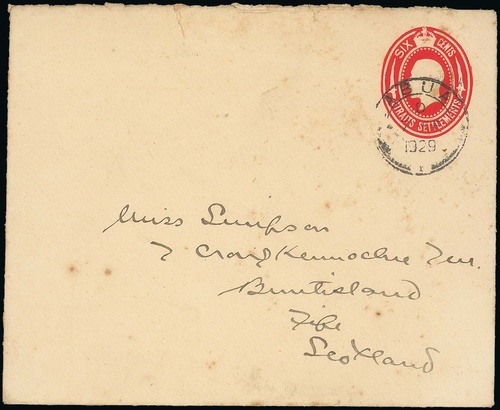 SIX CENTS
STRAITS SETTLEMENTS
1929
Miss Simpson
7 Craig Kennochie Terr.
Burntisland
Fife
Scotland